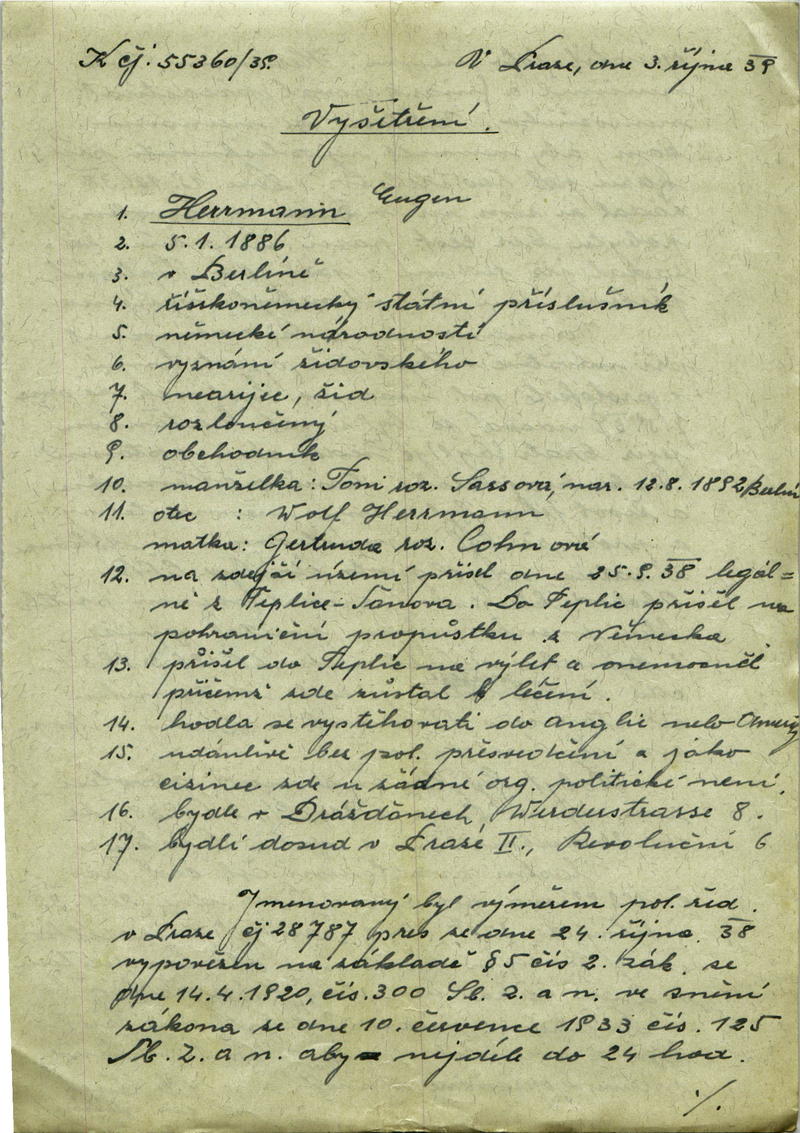 K čj. 55360/39.
V Praze, dne 3. října 39
Vyšetření.
1. Herrmann Eugen
2. 5.1. 1886
3. v Berlíně
4. říšskoněmecký státní příslušník
5. německé národnosti
6. vyznání židovského
7. nearijec, žid
8. rozloučený
9. obchodník
10. manželka: Toni roz. Sassová, nar. 12.8. 1892 Berlin
11. otec : Wolf Herrmann
matka: Gertruda roz. Cohnová
12. na zdejší území přišel dne 25.9. 38 legál=
ně z Teplice-Šanova. Do Teplic přišel na
pohraniční propustku z Německa
13. přišel do Teplic na výlet a onemocněl
přičemž zde zůstal k léčení.
14. hodlá se vystěhovati do Anglie nebo Ameriky
15. udánlivě bez pol. přesvědčení a jako
cizinec zde u žádné org. politické není.
16. bydle v Drážďanech, Werderstrasse 8.
17. bydlí dosud v Praze II., Revoluční 6
Jmenovaný byl výměrem pol. řed.
v Praze čj 28787 pres ze dne 24. října 38
vypovězen na základě § 5 čís 2. zák. ze
dne 14.4.1920, čís. 300 Sb. z. a n. ve znění
zákona ze dne 10. července 1933 čís. 125
Sb. z. a n. aby nejdéle do 24 hod.
./.